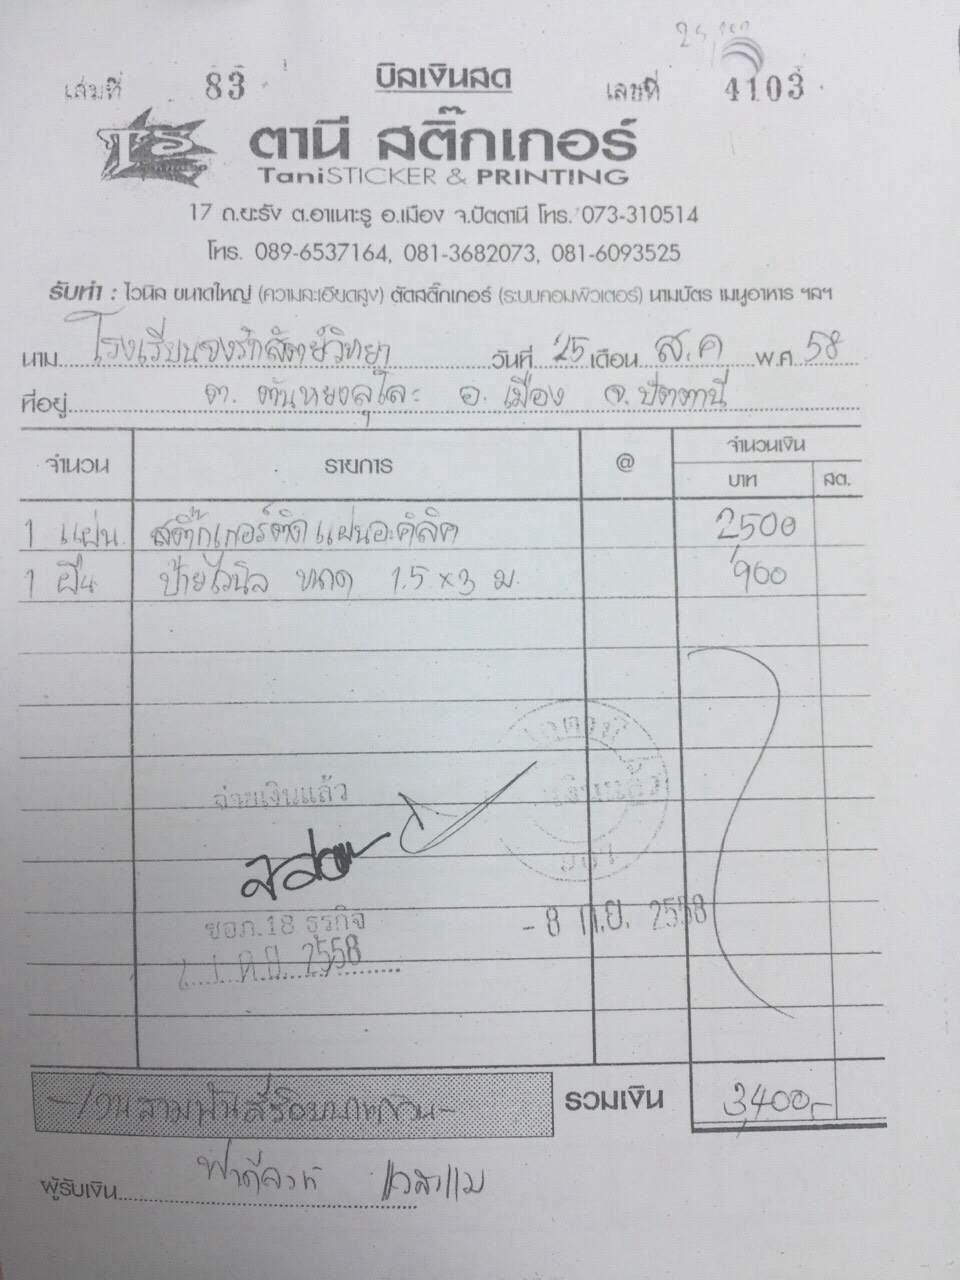 บิลเงินสด
เล่มที่ 83 เลขที่ 4103
TS ตานี สติ๊กเกอร์
TaniSTICKER & PRINTING
17 ถ.ยะรัง ต.อาเนาะรู อ.เมือง จ.ปัตตานี โทร. 073-310514
โทร. 089-6537164, 081-3682073, 081-6093525
รับทำ : ไวนิล ขนาดใหญ่ (ความละเอียดสูง) ตัดสติ๊กเกอร์ (ระบบคอมพิวเตอร์) นามบัตร เมนูอาหาร ฯลฯ
นาม โรงเรียนจงรักสัตย์วิทยา วันที่ 25 เดือน ส.ค พ.ศ. 58
ที่อยู่ ต. ตันหยงลุโละ อ. เมือง จ. ปัตตานี
จำนวน รายการ @ จำนวนเงิน
บาท สต.
1 แผ่น สติ๊กเกอร์ติดแผ่นอะคิลิค 2,500
1 ผืน ป้ายไวนิล ขนาด 1.5 x 3 ม. 900
จ่ายเงินแล้ว
เงินแล้ว
ชอภ.18 ธุรกิจ
- 8 ก.ย. 2558
2558
-เงินสามพันสี่ร้อยบาทถ้วน- รวมเงิน 3,400.-
ผู้รับเงิน